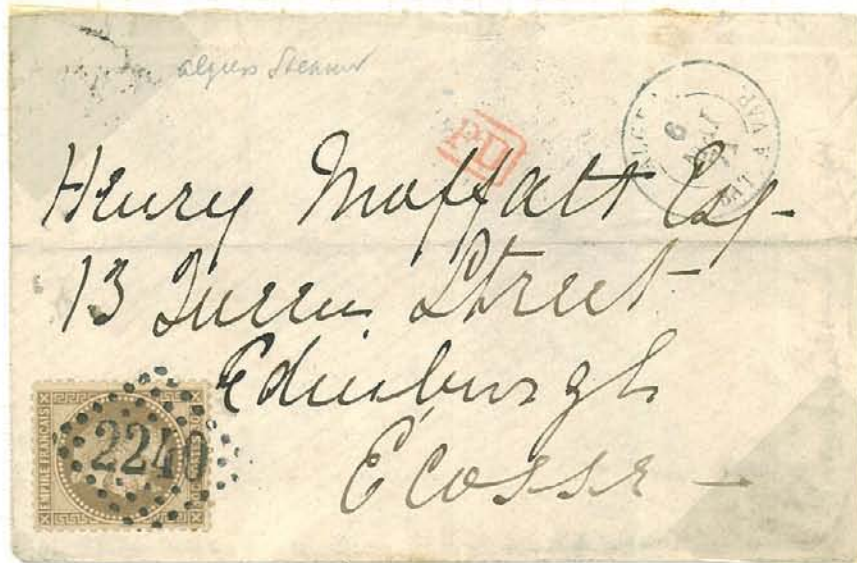 algiers Steamer
PD
ALGER
BAT. A VAP.
6
MAI
71
Henry Moffatt Esq-
13 Queen Street
Edinburgh
Ecosse -
EMPIRE FRANÇAIS
2240